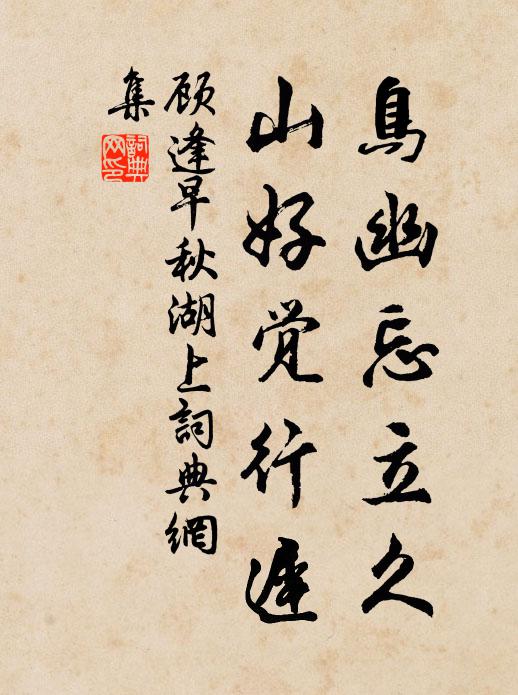 鳥幽忘立久
山好觉行遲
顾逢早秋湖上詞典網
集
詞典
网印